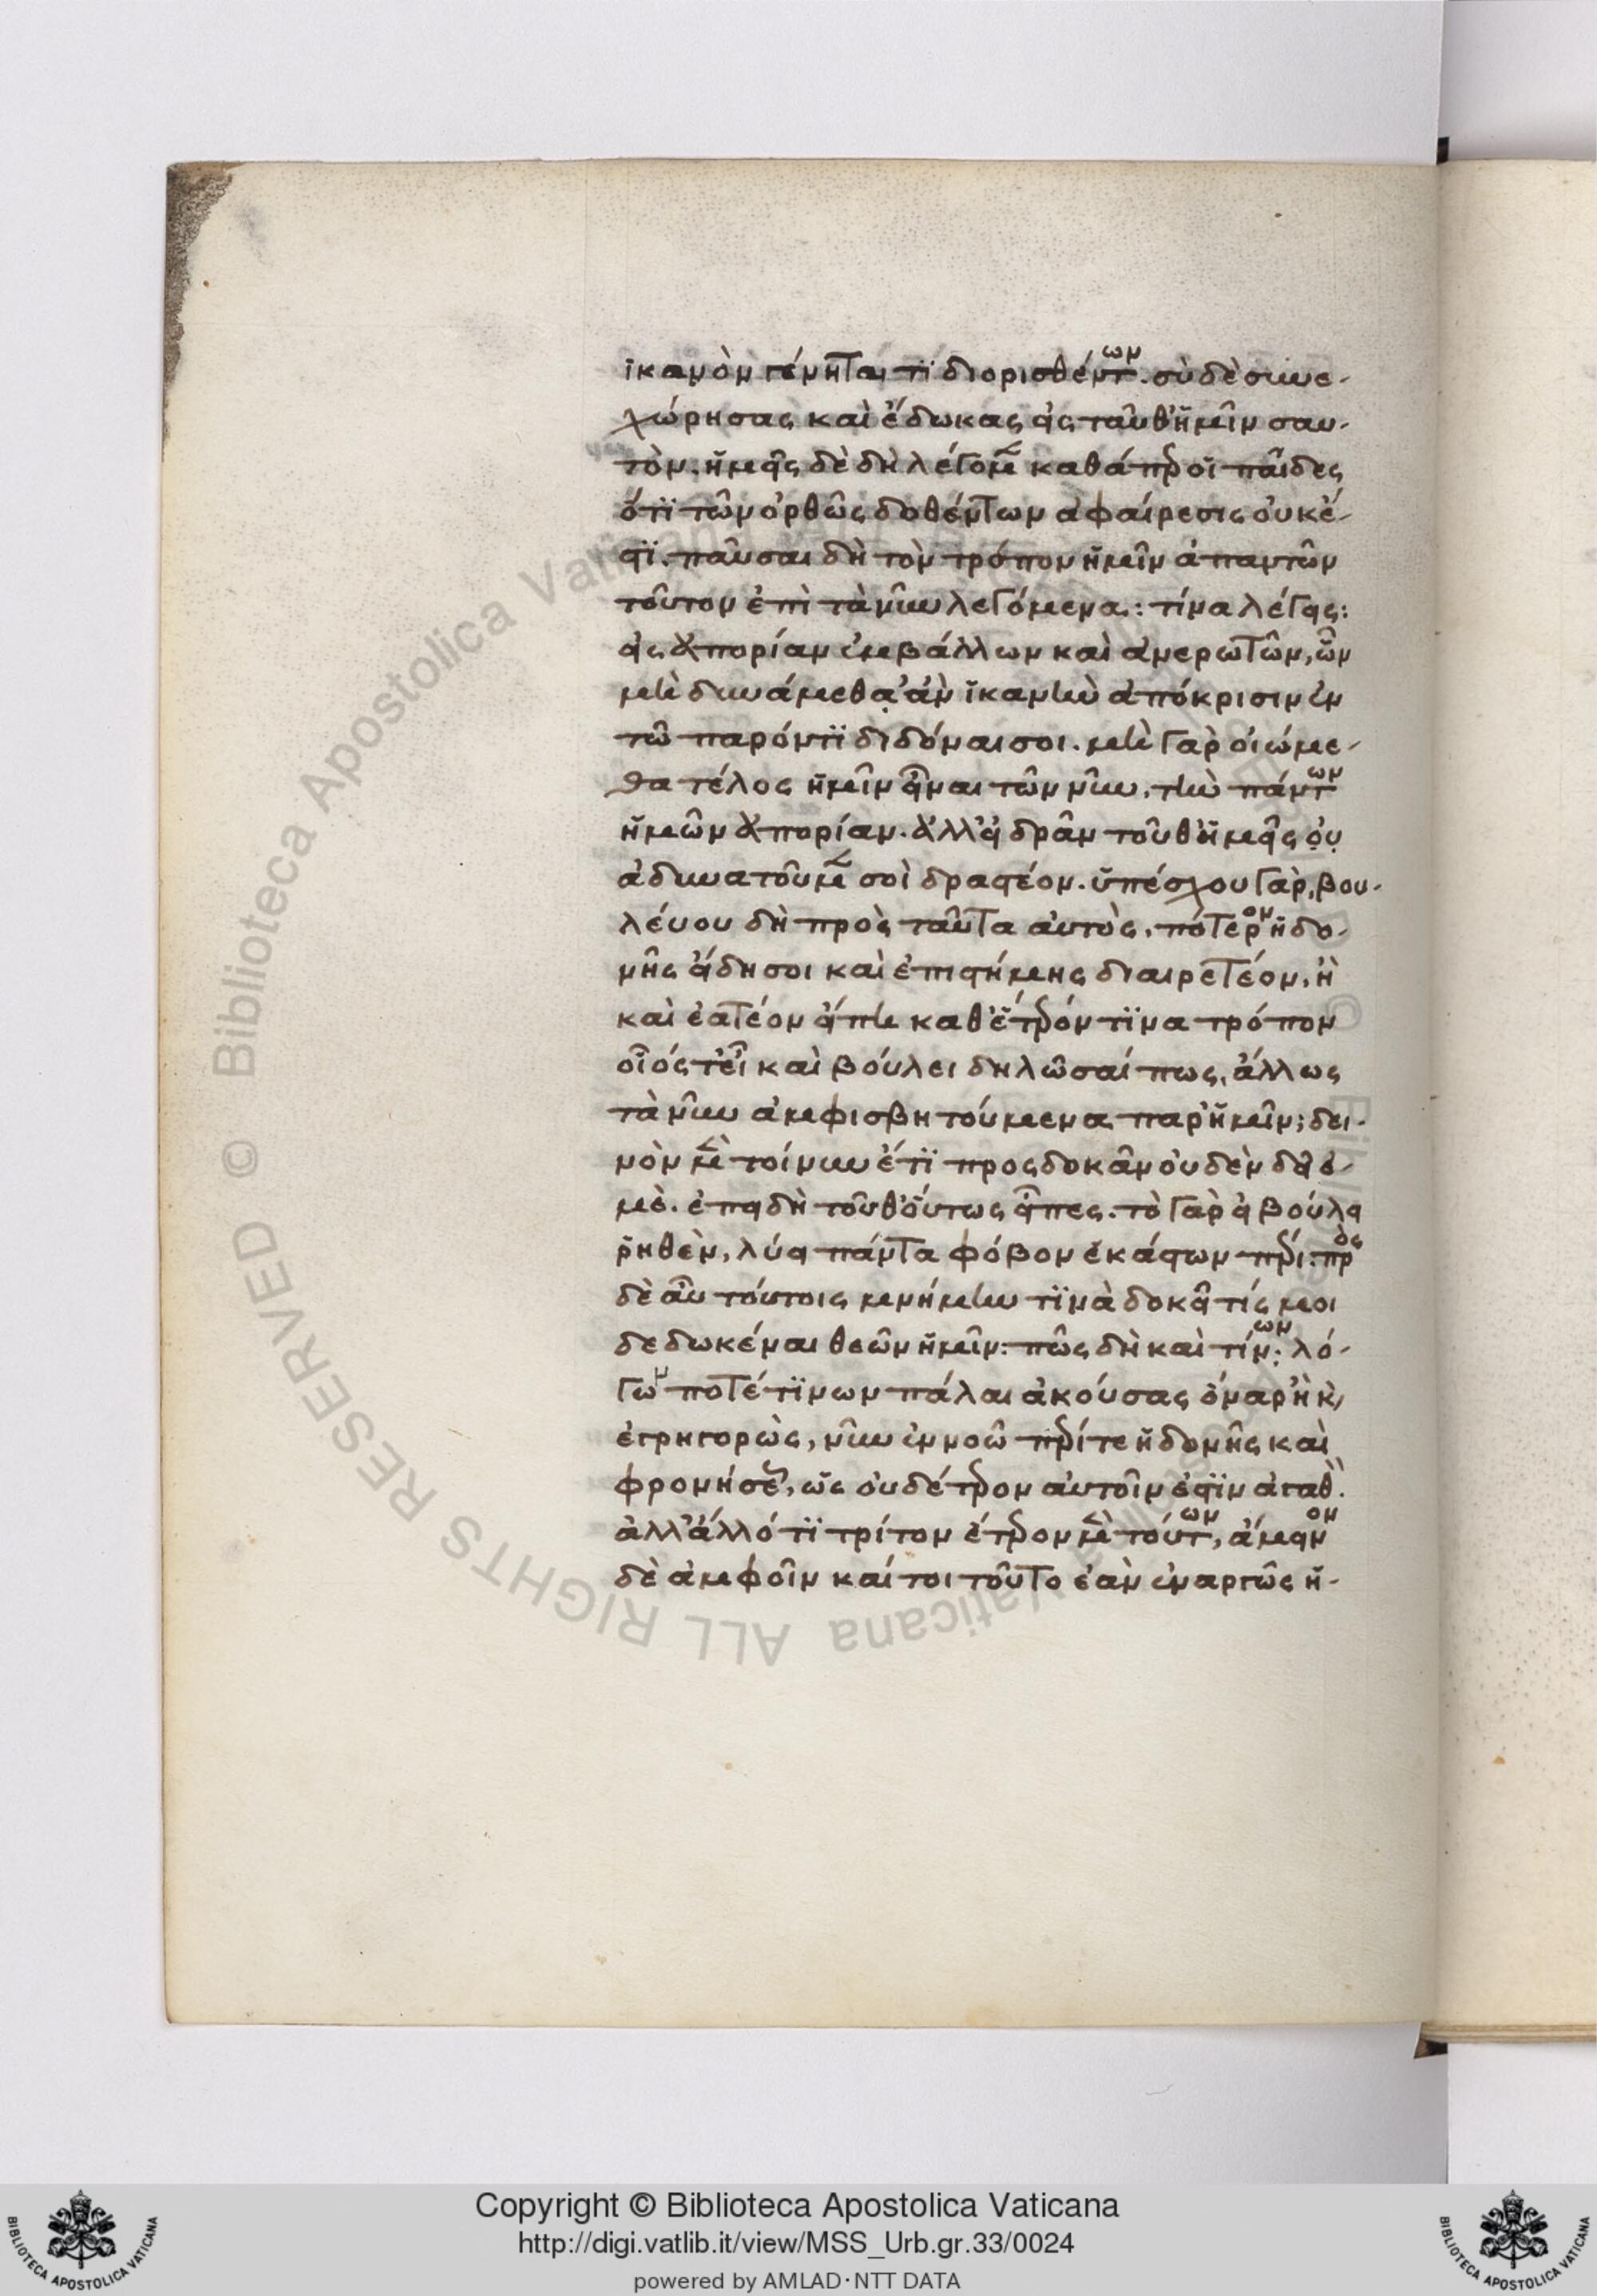 ἱκανὸν γένηται τι διορισθέντων. σὺ δὲ συνε-
χώρησας καὶ ἔδωκας εἰς ταῦθ' ἡμῖν σαυ-
τὸν. ἡμεῖς δὲ δὴ λέγομεν καθάπερ οἱ παῖδες
ὅτι τῶν ὀρθῶς δοθέντων ἀφαίρεσις οὐκ ἔ-
στι. παῦσαι δὴ τὸν τρόπον ἡμῖν ἀπαντῶν
τοῦτον ἐπὶ τὰ νῦν λεγόμενα: τίνα λέγεις:
εἰς ἀπορίαν ἐμβάλλων καὶ ἀνερωτῶν, ὧν
μὴ δυναίμεθα ἂν ἱκανὴν ἀπόκρισιν ἐν
τῶ παρόντι διδόναι σοι. μὴ γὰρ οἰώμε-
θα τέλος ἡμῖν εἶναι τῶν νῦν, τὴν πάντων
ἡμῶν ἀπορίαν. ἀλλ' εἰ δρᾶν τοῦθ' ἡμεῖς οὐ
ἀδυνατοῦμεν σοὶ δραστέον. ὑπέσχου γὰρ, βου-
λεύου δὴ πρὸς ταῦτα αὐτὸς, πότερον ἡδο-
νῆς εἴδη σοι καὶ ἐπιστήμης διαιρετέον, ἢ
καὶ ἐατέον εἴ πη καθ' ἕτερόν τινα τρόπον
οἷός τ' εἶ καὶ βούλει δηλῶσαί πως, ἄλλως
τὰ νῦν ἀμφισβητούμενα παρ' ἡμῖν; δει-
νὸν μὲν τοίνυν ἔτι προςδοκᾶν οὐδὲν δεῖ ἐ-
μὲ. ἐπειδὴ τοῦθ' οὕτως εἶπες. τὸ γὰρ εἰ βούλει
ῥηθὲν, λύει πάντα φόβον ἑκάστων πέρι: πρὸς
δὲ αὖ τούτοις μνήμην τινὰ δοκεῖ τίς μοι
δεδωκέναι θεῶν ἡμῖν: πῶς δὴ καὶ τίνων; λό-
γων ποτέ τινων πάλαι ἀκούσας ὄναρ ἢ καὶ
ἐγρηγορὼς, νῦν ἐννοῶ πέρί τε ἡδονῆς καὶ
φρονήσεως, ὡς οὐδέτερον αὐτοῖν ἐστὶν ἀγαθὸν.
ἀλλ' ἄλλό τι τρίτον ἕτερον μὲν τούτων, ἄμεινον
δὲ ἀμφοῖν καί τοι τοῦτο ἐὰν ἐναργῶς ἡ-
Copyright © Biblioteca Apostolica Vaticana
http://digi.vatlib.it/view/MSS_Urb.gr.33/0024
powered by AMLAD·NTT DATA